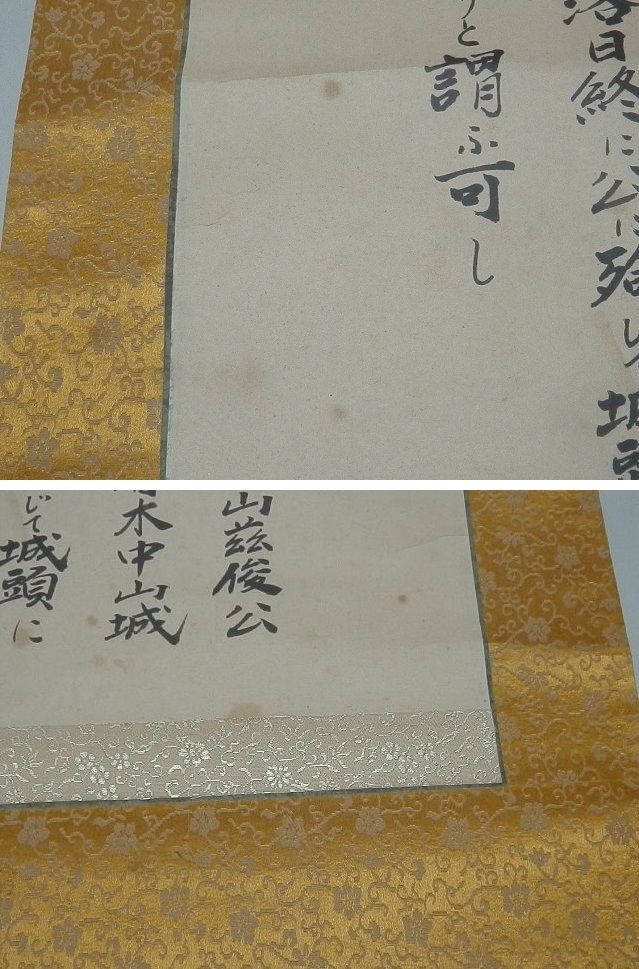 日終に公に
りと謂ふ可し
山茲俊公
木中山城
じて城頭に